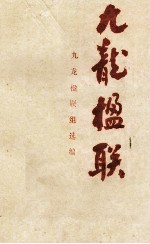 九龍楹联
九龙楹联组选编